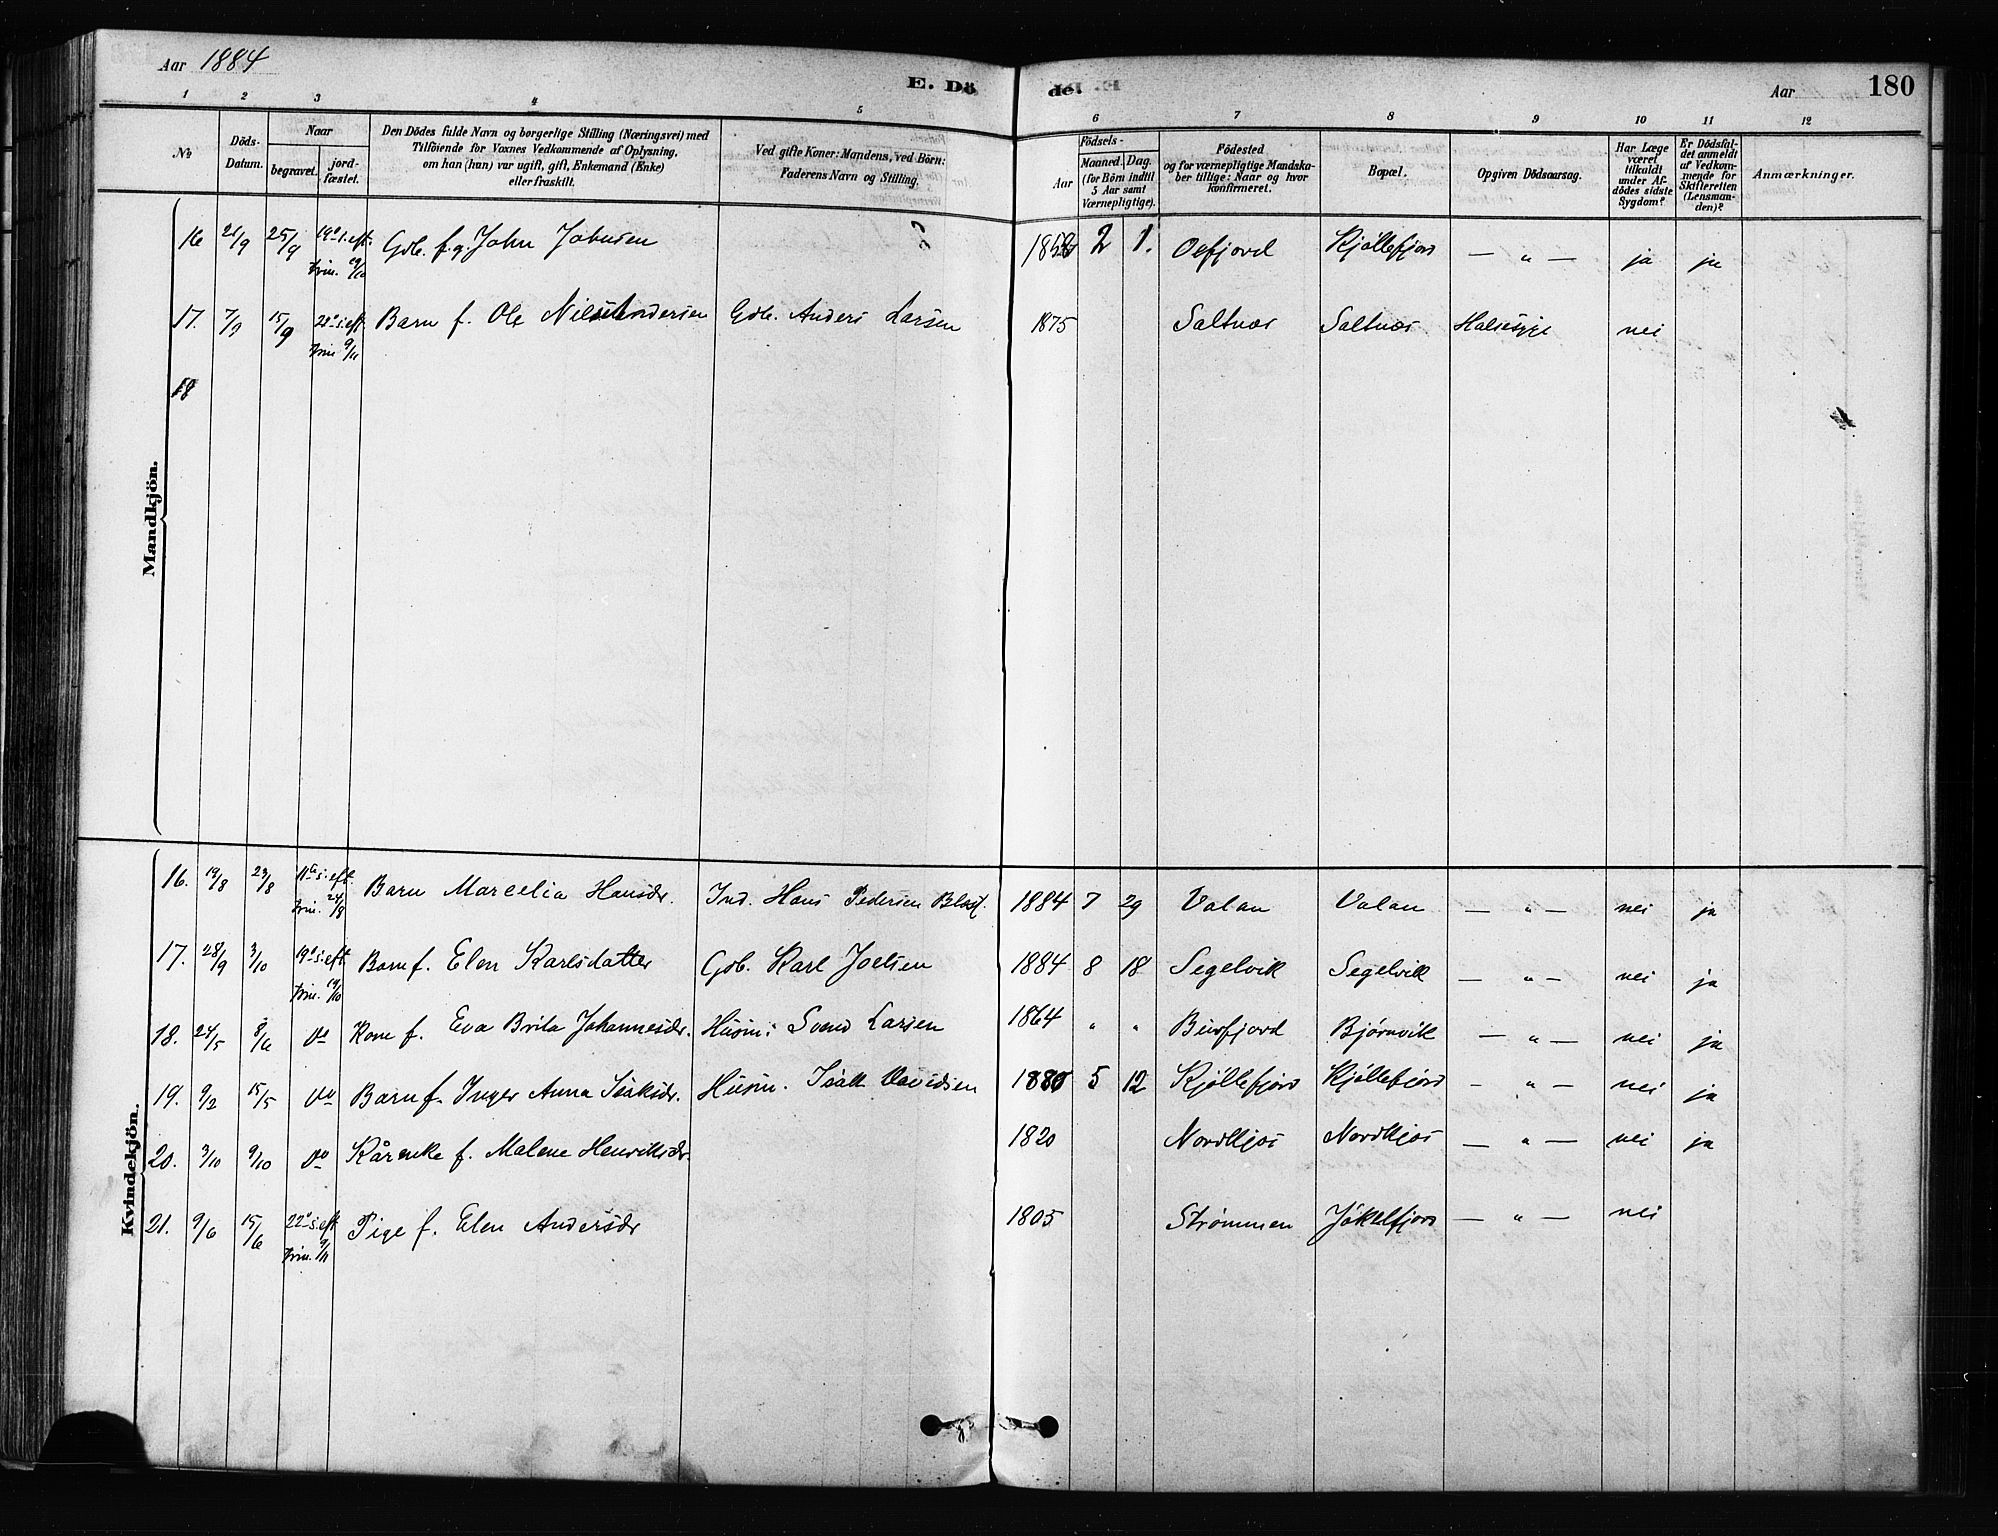 Aar 1884
E. Dö
de.
Aar
180
1 2 3 4 5 6 7 8 9 10 11 12
No
Döds-Datum.
Naar
begravet.
jord-fæstet.
Den Dödes fulde Navn og borgerlige Stilling (Næringsvei) med
Tilföiende for Voxnes Vedkommende af Oplysning,
om han (hun) var ugift, gift, Enkemand (Enke)
eller fraskilt.
Ved gifte Koner: Mandens, ved Börn:
Faderens Navn og Stilling.
Födsels-
Aar
Maaned. Dag.
(for Börn indtil
5 Aar samt
Værnepligtige).
Födested
og for værnepligtige Mandska-
ber tillige: Naar og hvor
konfirmeret.
Bopæl.
Opgiven Dödsaarsag.
Har Læge
været
tilkaldt
under Af-
dödes sidste
Sygdom?
Er Dödsfal-
det anmeldt
af Vedkom-
mende for
Skifteretten
(Lensman-
den)?
Anmærkninger.
Mandkjön.
16 21/9 25/9 19de s. eft. trin. 19/10 Gdb. f. g. John Johnsen 2 1. Oefjord Kjøllefjord — " — ja ja
17. 7/9 15/9 s. eft. trin 9/11 Barn f. Ole Nils Andersen Gdb. Anders Larsen 1875 Saltnæs Saltnæs Halsesyge nei
18
Kvindekjön.
16. 19/8 23/8 11te s. eft. trin. 24/8 Barn Marcelia Hansdr. Ind. Hans Pedersen 1884 7 29 Valan Valan — " — nei ja
17. 28/9 3/10 19de s. eft. trin. 19/10 Barn f. Elen Karlsdatter Gdb. Karl Joelsen 1884 8 18 Segelvik Segelvik — " — nei ja
18. 24/5 8/6 do Kone f. Eva Brita Johannesdr. Husm: Svend Larsen 1864 " " Burfjord Bjørnvik — " — nei ja
19. 9/2 15/5 do Barn f. Inger Anna Isaksdr. Husm. Isak Davidsen 5 12 Kjøllefjord Kjøllefjord — " — nei ja
20. 3/10 9/10 do Kårenke f. Malene Henriksdr. 1820 Nordkjos Nordkjos — " — nei ja
21. 9/6 15/6 22de s. eft. trin. 9/11 Pige f. Elen Andersdr 1805 Strømmen Jøkelfjord — " — nei